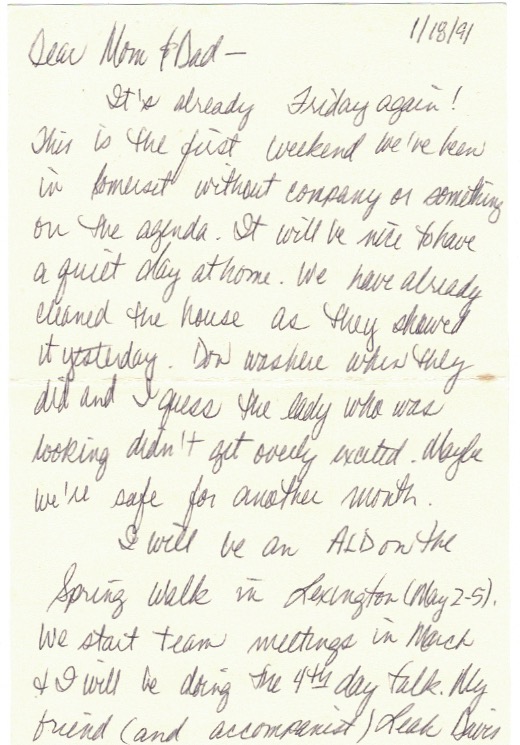 1/18/91
Dear Mom & Dad —
It's already Friday again!
This is the first weekend we've been
in Somerset without company or something
on the agenda. It will be nice to have
a quiet day at home. We have already
cleaned the house as they showed
it yesterday. Don was here when they
did and I guess the lady who was
looking didn't get overly excited. Maybe
we're safe for another month.
I will be an ALD on the
Spring Walk in Lexington (May 2-5).
We start team meetings in March
& I will be doing the 4th day talk. My
friend (and accompanist) Leah Davis